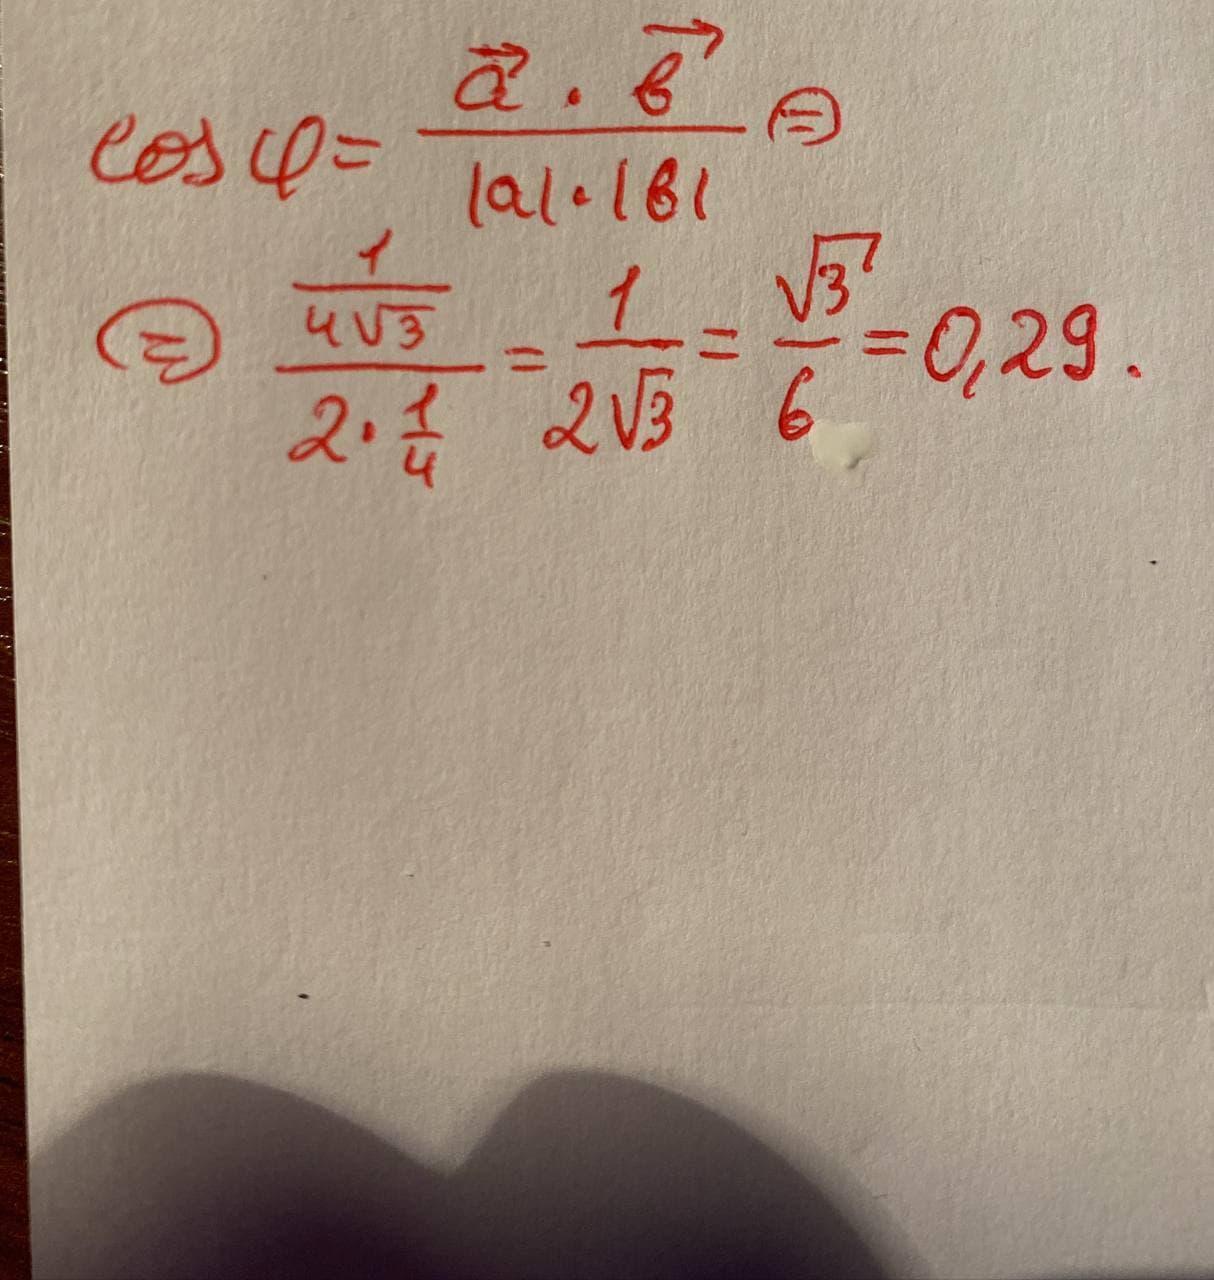 cos φ = (a⃗ · в⃗) / (|a| · |в|) ⊜
⊜ (1 / (4√3)) / (2 · 1/4) = 1 / (2√3) = √3 / 6 = 0,29.